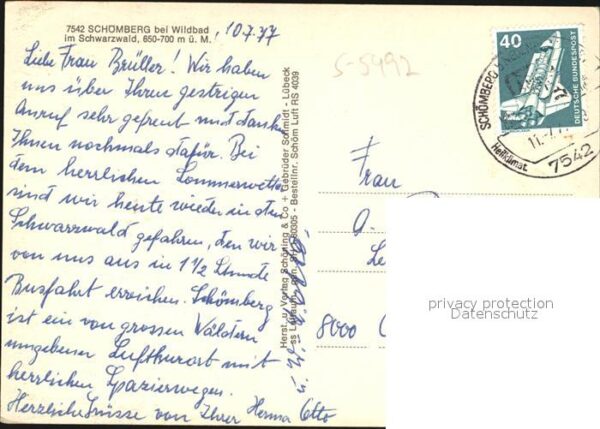 7542 SCHÖMBERG bei Wildbad
im Schwarzwald, 650-700 m ü. M.
10.7.77
Liebe Frau Brüller! Wir haben
uns über Ihren gestrigen
Anruf sehr gefreut und danken
Ihnen nochmals dafür. Bei
dem herrlichen Sommerwetter
sind wir heute wieder in den
Schwarzwald gefahren, den wir
von uns aus in 1 1/2 Stunde
Busfahrt erreichen. Schömberg
ist ein von grossen Wäldern
umgebener Luftkurort mit
herrlichen Spazierwegen.
Herzliche Grüsse von Ihrer Herma Otto
Herst. u. Verlag Schöning & Co + Gebrüder Schmidt - Lübeck
Bestellnr. Schöm Luft RS 4039
S-5492
40
DEUTSCHE BUNDESPOST
SCHÖMBERG
11.7.77
Heilklimat.
7542
Frau
8000
privacy protection
Datenschutz